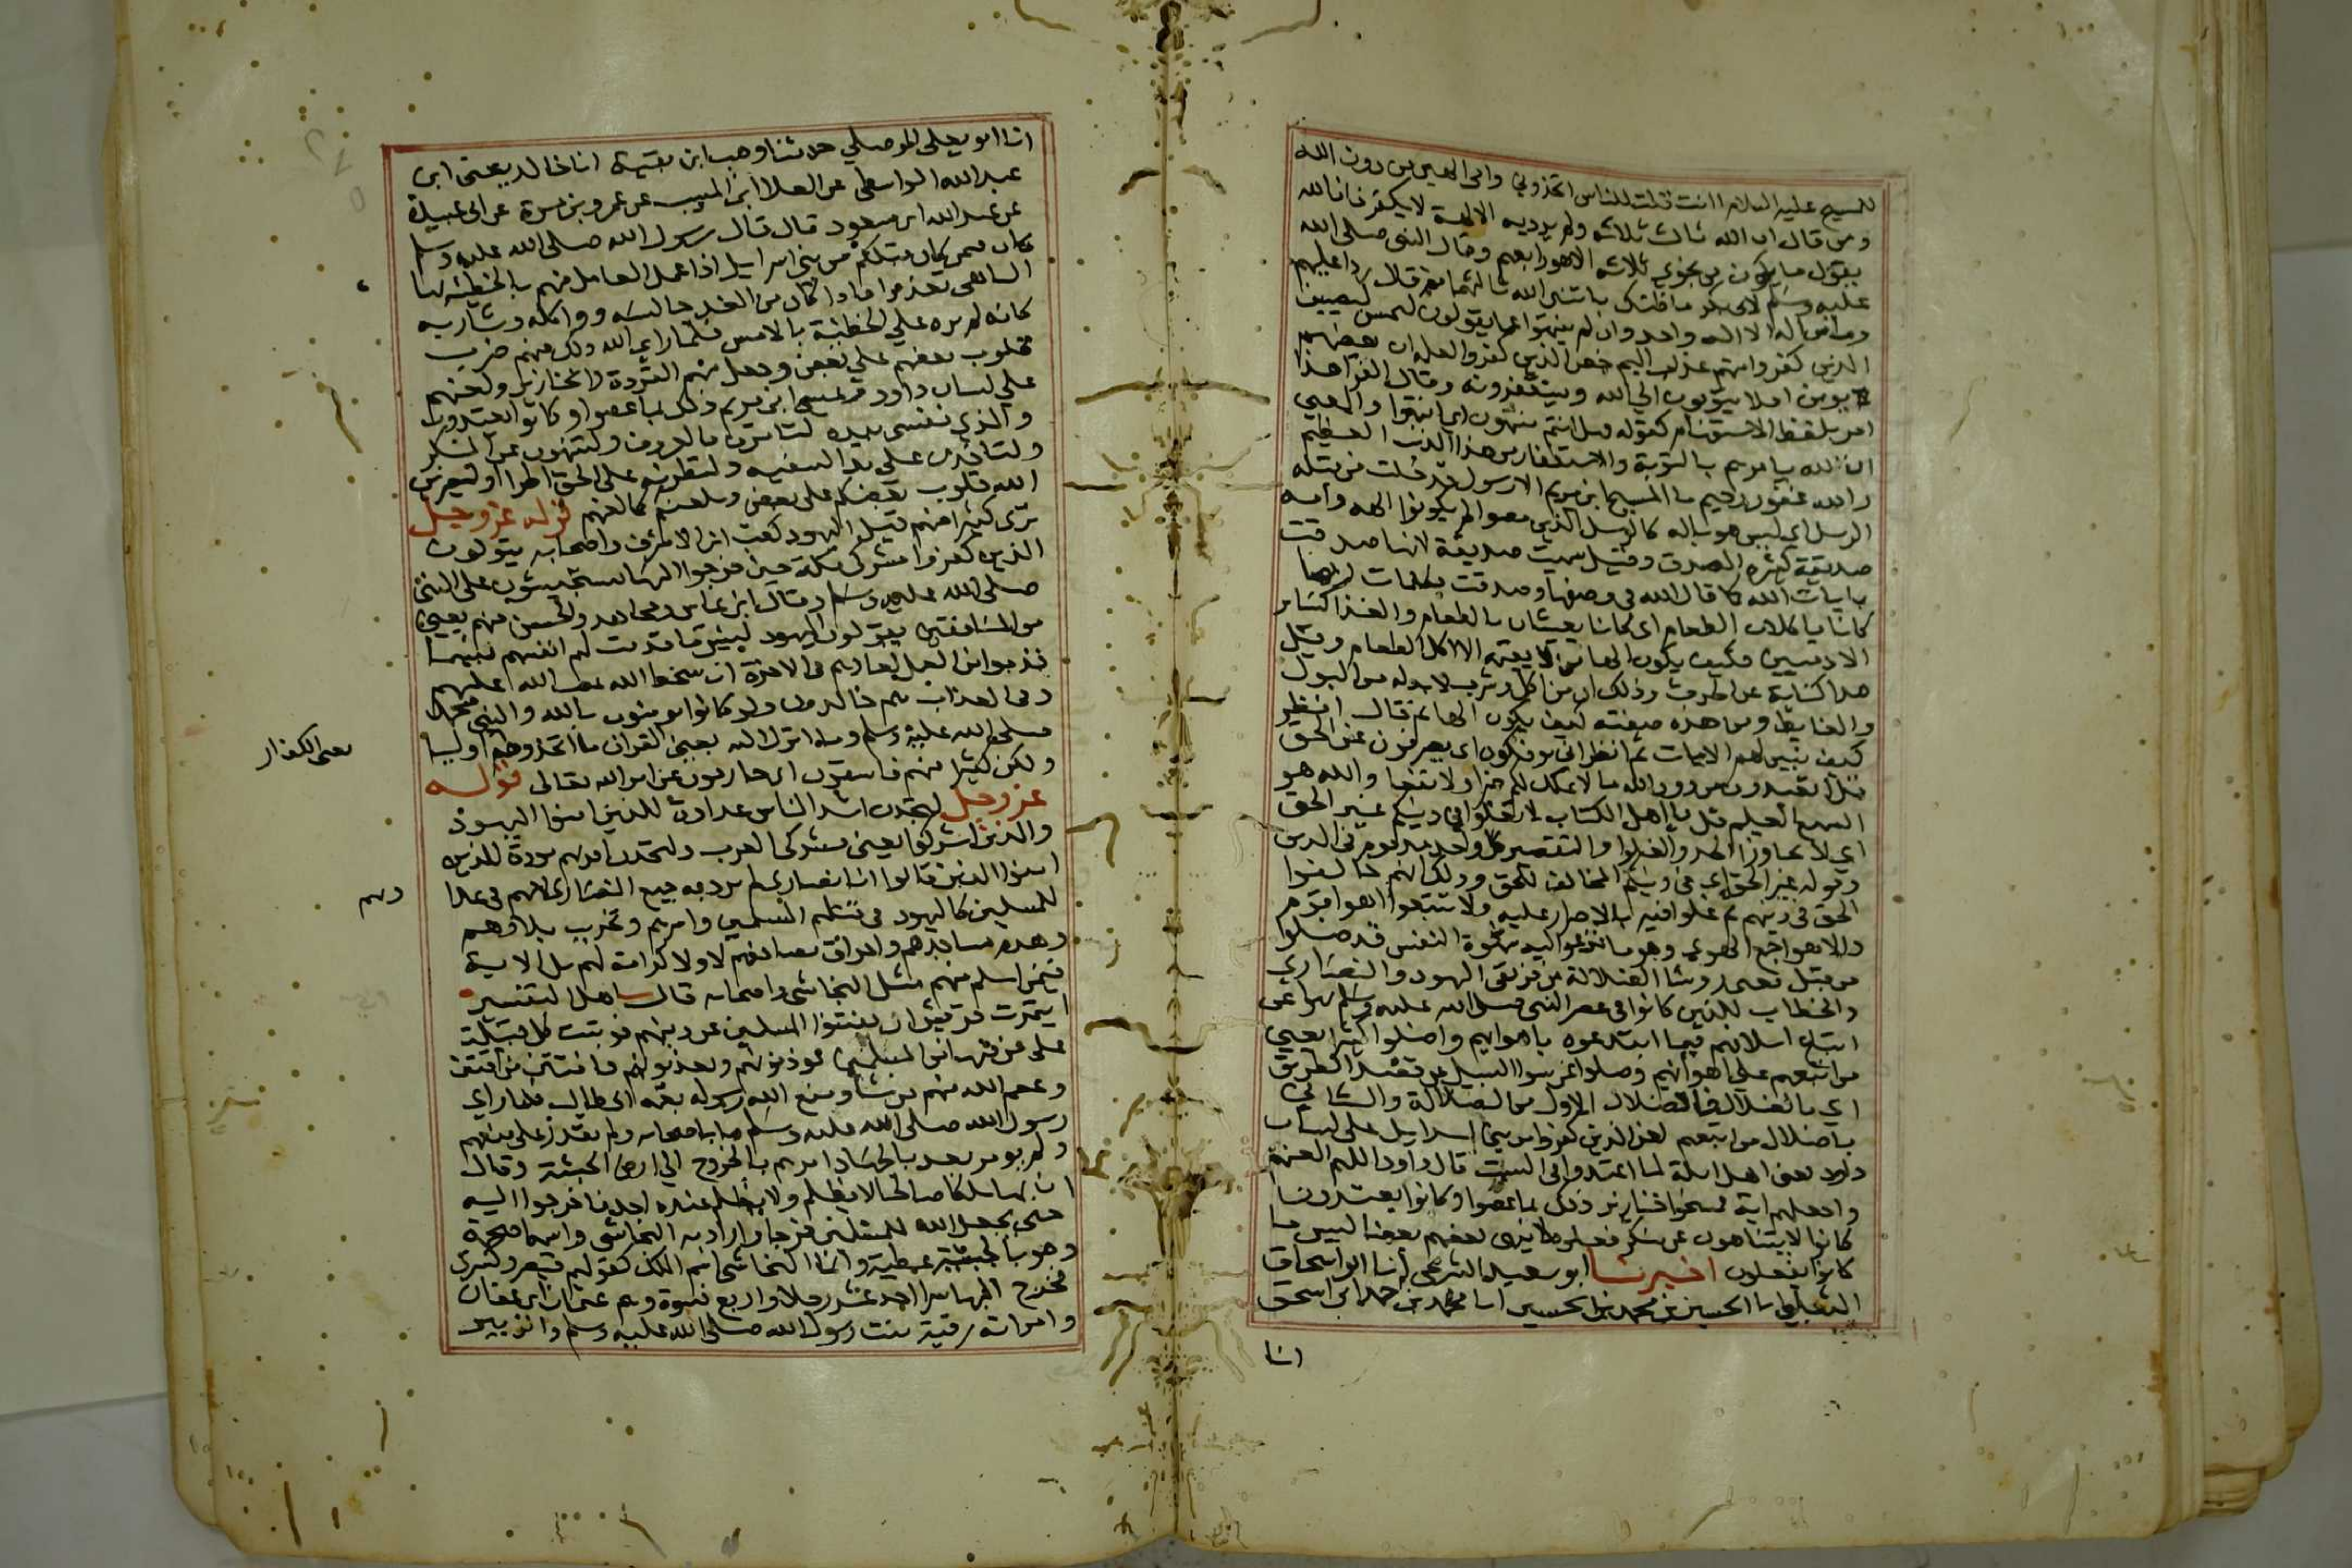 للمسيح عليه السلام اانت قلت للناس اتخذوني وامي الهين من دون الله
ومن قال ان الله ثالث ثلاثة ولم يرد به الالهة لا يكفر فان الله
يقول ما يكون من نجوى ثلاثة الا هو رابعهم وقال النبي صلى الله
عليه وسلم لابي بكر ما ظنك باثنين الله ثالثهما ثم قال ردا عليهم
وما من اله الا اله واحد وان لم ينتهوا عما يقولون ليمسن ليصيبن
الذين كفروا منهم عذاب اليم خص الذين كفروا لعلمه ان بعضهم
يومن افلا يتوبون الى الله ويستغفرونه وقال الفرا هذا
امر بلفظ الاستفهام كقوله فهل انتم منتهون اي انتهوا والمعنى
ان الله يامرهم بالتوبة والاستغفار من هذا الذنب العظيم
والله غفور رحيم ما المسيح ابن مريم الا رسول قد خلت من قبله
الرسل اي ليس هو باله كالرسل الذين مضوا لم يكونوا الهة وامه
صديقة كثيرة الصدق وقيل سميت صديقة لانها صدقت
بايات الله كما قال الله في وصفها وصدقت بكلمات ربها
كانا ياكلان الطعام اي كانا يعيشان بالطعام والغذا كساير
الادميين فكيف يكون الها من لا يقيمه الا اكل الطعام وقيل
هذا كناية عن الحدث وذلك ان من اكل وشرب لا بد له من البول
والغايط ومن هذه صفته كيف يكون الها ثم قال انظر
كيف نبين لهم الايات ثم انظر اني يوفكون اي يصرفون عن الحق
قل اتعبدون من دون الله ما لا يملك لكم ضرا ولا نفعا والله هو
السميع العليم قل يا اهل الكتاب لا تغلوا في دينكم غير الحق
اي لا تجاوزا الحد والغلو والتقصير كل واحد مذموم في الدين
وقوله غير الحق اي في دينكم المخالف للحق وذلك انهم خالفوا
الحق في دينهم ثم غلوا فيه بالاصرار عليه ولا تتبعوا اهوا قوم
والاهوا جمع الهوى وهو ما تدعوا اليه شهوة النفس قد ضلوا
من قبل يعني روسا الضلالة من فريقي اليهود والنصاري
والخطاب للذين كانوا في عصر النبي صلى الله عليه وسلم نهوا عن
اتباع اسلافهم فيما ابتدعوه باهوايهم واضلوا كثيرا يعني
من اتبعهم على اهوائهم وضلوا عن سوا السبيل عن قصد الطريق
اي بالضلال فالضلال الاول من الضلالة والثاني
باضلال من اتبعهم لعن الذين كفروا من بني اسرايل على لسان
داود يعني اهل ايلة لما اعتدوا في السبت قال داود اللهم العنهم
واجعلهم اية فمسخوا خنازير ذلك بما عصوا وكانوا يعتدون
كانوا لا يتناهون عن منكر فعلوه لا ينهى بعضهم بعضا لبيس ما
كانوا يفعلون اخبرنا ابو سعيد الشرعي أنا ابو اسحاق
الثعلبي انا الحسين بن محمد بن الحسين انا محمد بن احمد ابن اسحق
انا
انا ابو يعلى الموصلي حدثنا وهب ابن بقية انا خالد يعني ابن
عبد الله الواسطي عن العلا ابن المسيب عن عمرو بن مرة عن ابي عبيدة
عن عبد الله ابن مسعود قال قال رسول الله صلى الله عليه وسلم
كان فيمن كان قبلكم من بني اسرايل اذا عمل العامل منهم بالخطيئة نهاه
الناهي تعذيرا فاذا كان من الغد جالسه وواكله وشاربه
كانه لم يره على الخطيئة بالامس فلما راي الله ذلك منهم ضرب
قلوب بعضهم على بعض وجعل منهم القردة والخنازير ولعنهم
على لسان داود وعيسى ابن مريم ذلك بما عصوا وكانوا يعتدون
والذي نفسي بيده لتامرن بالمعروف ولتنهون عن المنكر
ولتاخذن على يد السفيه ولتطرنه على الحق اطرا او ليضربن
الله قلوب بعضكم على بعض ويلعنكم كما لعنهم قوله عز وجل
ترى كثيرا منهم قيل اليهود كعب ابن الاشرف واصحابه يتولون
الذين كفروا مشركي مكة حين خرجوا اليها يستجيشون على النبي
صلى الله عليه وسلم وقال ابن عباس ومجاهد والحسن منهم يعني
من المنافقين يتولون اليهود لبيس ما قدمت لهم انفسهم بيسما
قدموا من العمل لمعادهم في الاخرة ان سخط الله غضب الله عليهم
وفي العذاب هم خالدون ولو كانوا يومنون بالله والنبي محمد
صلى الله عليه وسلم وما انزل اليه يعني القران ما اتخذوهم اوليا
يعني الكفار
ولكن كثيرا منهم فاسقون اي خارجون عن امر الله تعالى قوله
عز وجل لتجدن اشد الناس عداوة للذين امنوا اليهود
والذين اشركوا يعني مشركي العرب ولتجدن اقربهم مودة للذين
امنوا الذين قالوا انا نصارى لم يرد به جميع النصارى لانهم في عداوتهم
للمسلمين كاليهود في قتلهم المسلمين واسرهم وتخريب بلادهم
وهدم مساجدهم واحراق مصاحفهم لا ولا كرامة لهم بل الاية
فيمن اسلم منهم مثل النجاشي واصحابه قال اهل التفسير
ايتمرت قريش ان يفتنوا المسلمين عن دينهم فوثبت كل قبيلة
على من فيها من المسلمين يوذونهم ويعذبونهم فافتتن من افتتن
وعصم الله منهم من شا ومنع الله رسوله بعمه ابي طالب فلما راى
رسول الله صلى الله عليه وسلم ما باصحابه ولم يقدر على منعهم
ولم يومر بعد بالجهاد امرهم بالخروج الى ارض الحبشة وقال
ان بها ملكا صالحا لا يظلم ولا يظلم عنده احد فاخرجوا اليه
حتى يجعل الله للمسلمين فرجا واراد به النجاشي واسمه اصحمة
وهو بالحبشة عطية وانما النجاشي اسم الملك كقولهم قيصر وكسرى
فخرج اليها سرا احد عشر رجلا واربع نسوة وهم عثمان ابن عفان
وامراته رقية بنت رسول الله صلى الله عليه وسلم والزبير